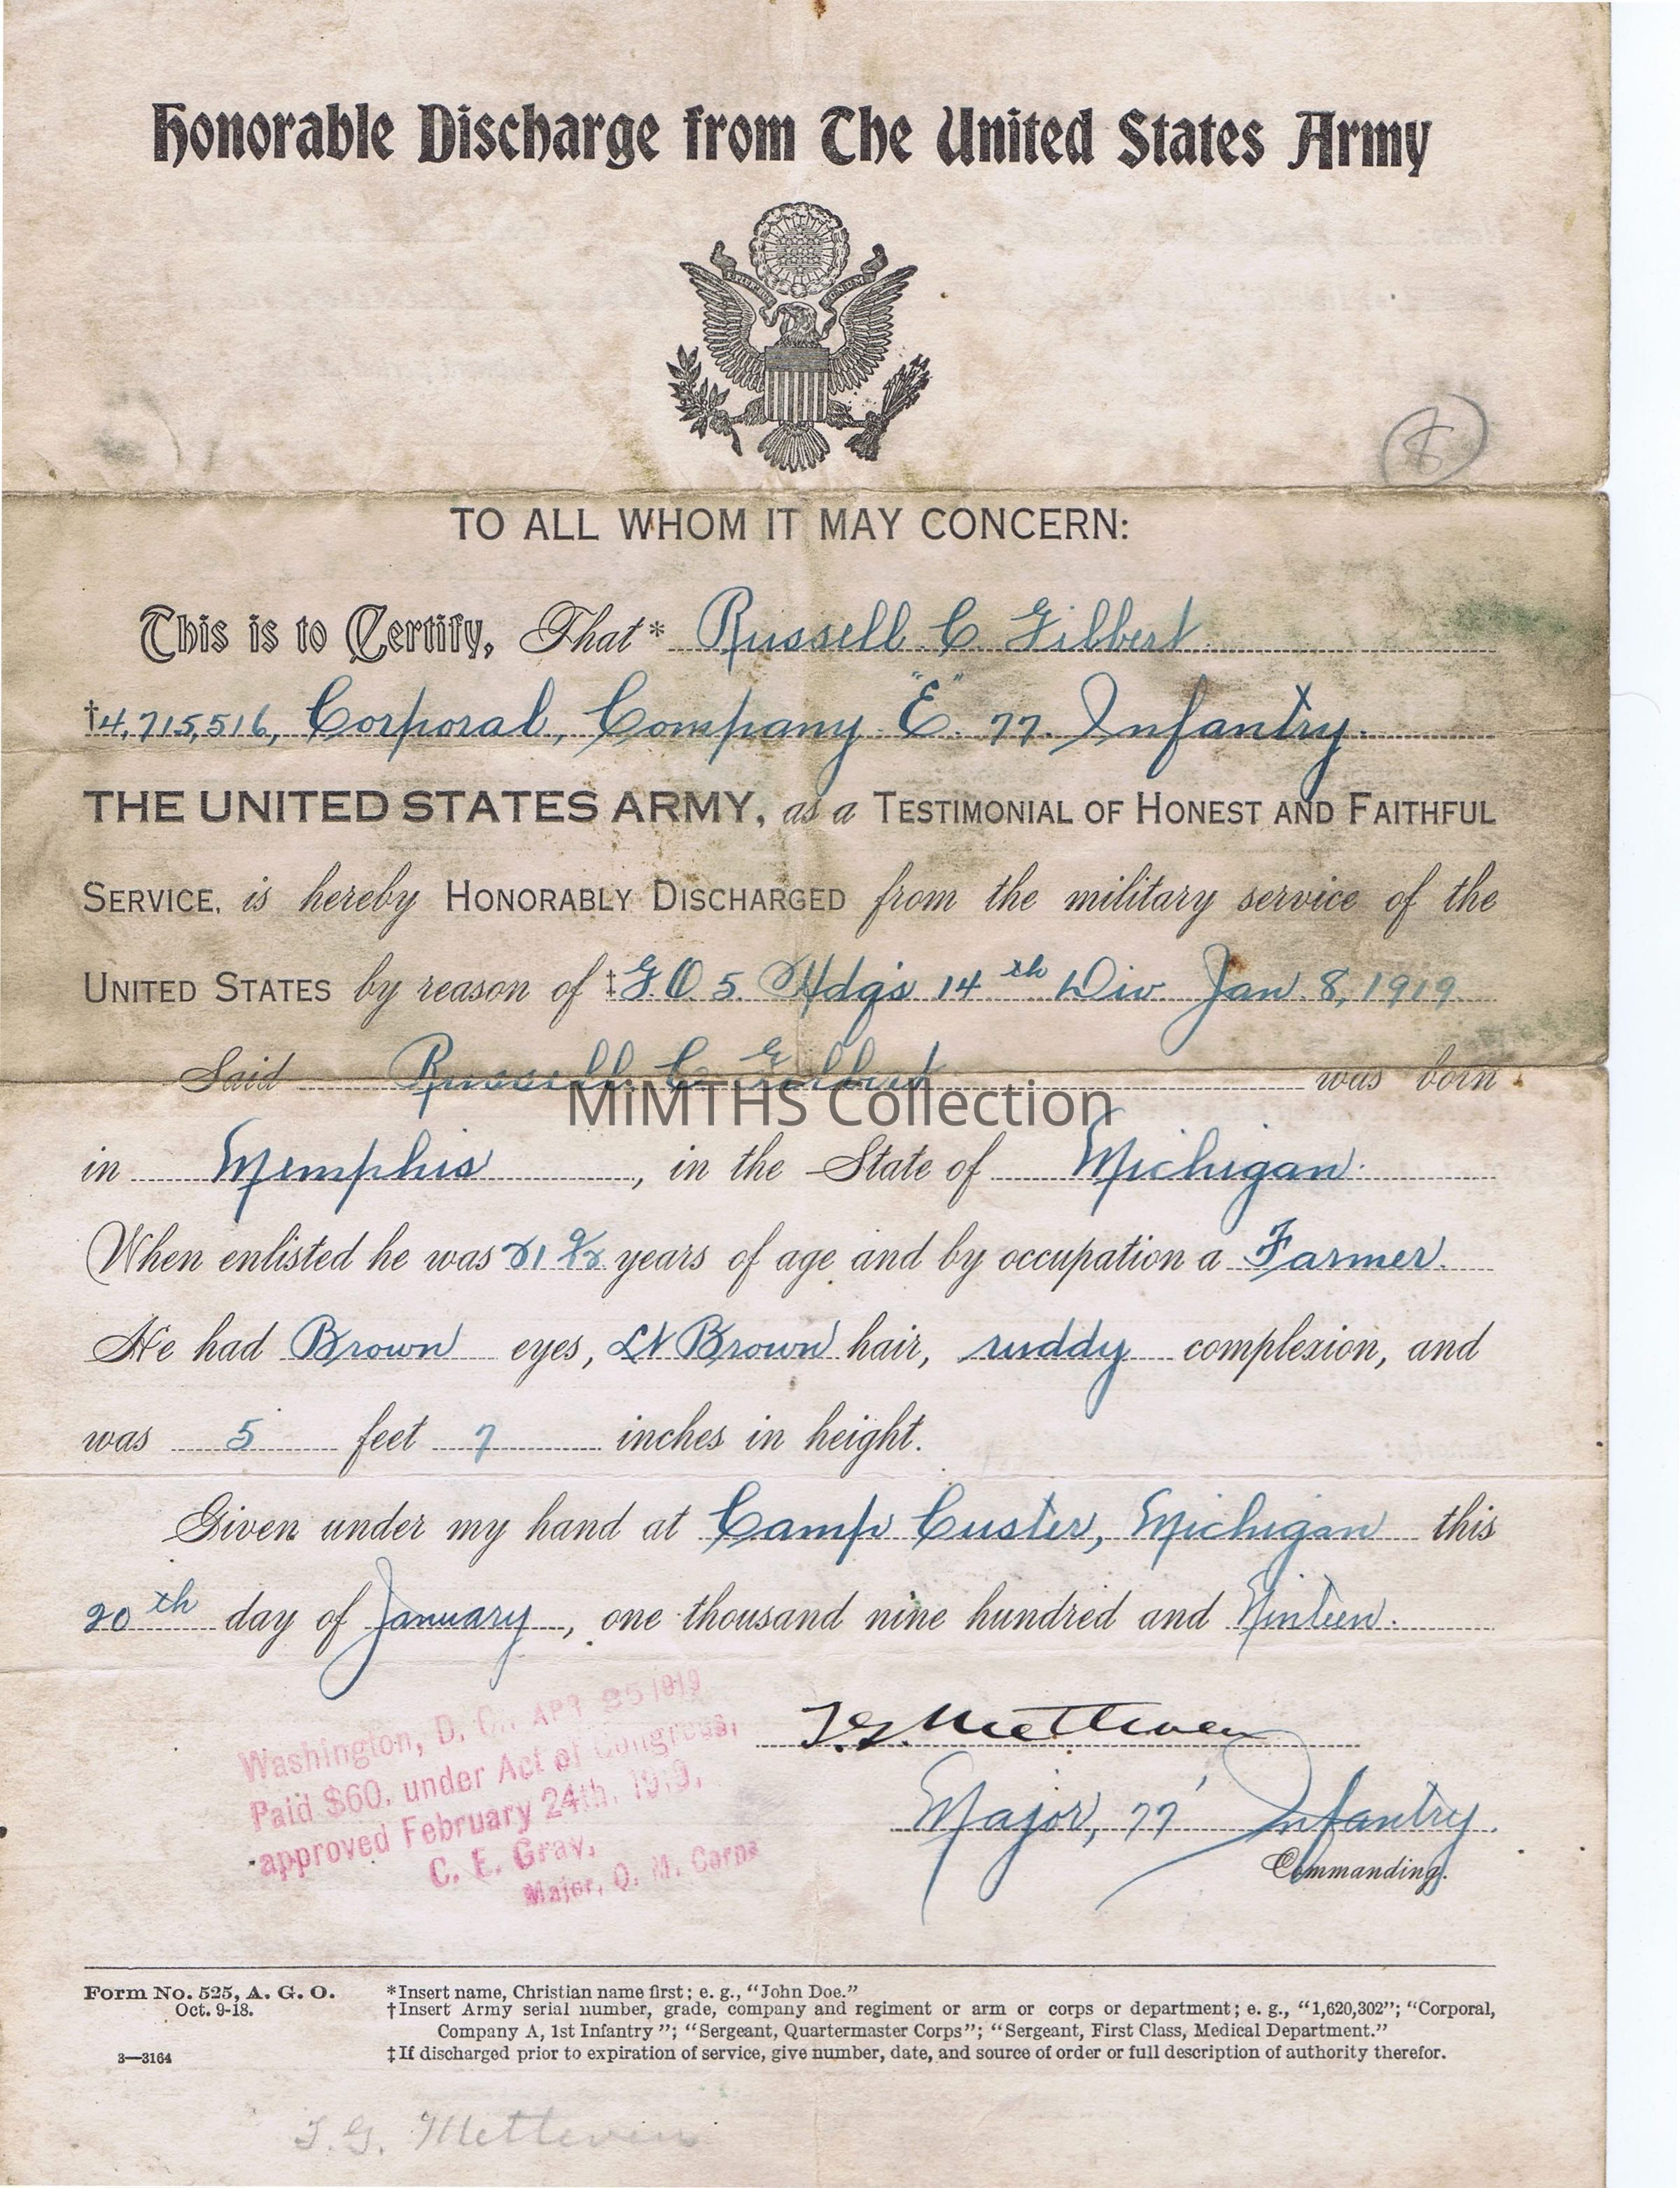 Honorable Discharge from The United States Army
E PLURIBUS UNUM
TO ALL WHOM IT MAY CONCERN:
This is to Certify, That* Russell C Gilbert
†4,715,516, Corporal, Company "E" 77. Infantry.
THE UNITED STATES ARMY, as a TESTIMONIAL OF HONEST AND FAITHFUL
SERVICE, is hereby HONORABLY DISCHARGED from the military service of the
UNITED STATES by reason of ‡G.O 5. Hdqs 14th Div Jan 8, 1919
Said Russell C Gilbert was born
MiMTHS Collection
in Memphis, in the State of Michigan.
When enlisted he was 21 years of age and by occupation a Farmer.
He had Brown eyes, Lt Brown hair, ruddy complexion, and
was 5 feet 7 inches in height.
Given under my hand at Camp Custer, Michigan this
20th day of January, one thousand nine hundred and Ninteen.
Washington, D. C., APR 25 1919
Paid $60, under Act of Congress,
approved February 24th, 1919,
C. E. Gray,
Major, Q. M. Corps
T.G. Methven
Major, 77' Infantry.
Commanding.
Form No. 525, A. G. O.
Oct. 9-18.
3—3164
*Insert name, Christian name first; e. g., "John Doe."
†Insert Army serial number, grade, company and regiment or arm or corps or department; e. g., "1,620,302"; "Corporal,
Company A, 1st Infantry"; "Sergeant, Quartermaster Corps"; "Sergeant, First Class, Medical Department."
‡If discharged prior to expiration of service, give number, date, and source of order or full description of authority therefor.
T.G.